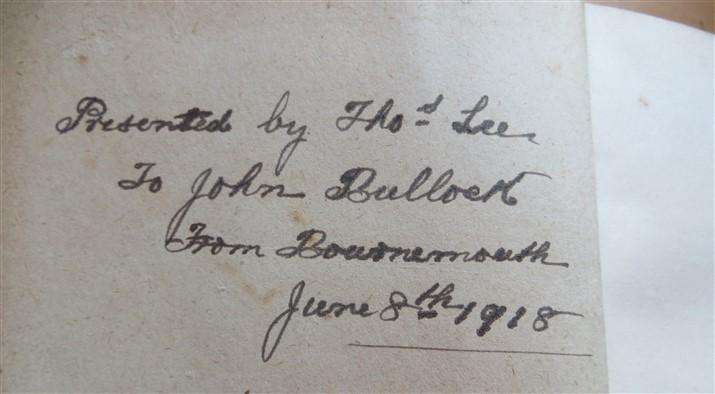 Presented by Thos Lee
To John Bullock
From Bournemouth
June 8th 1918